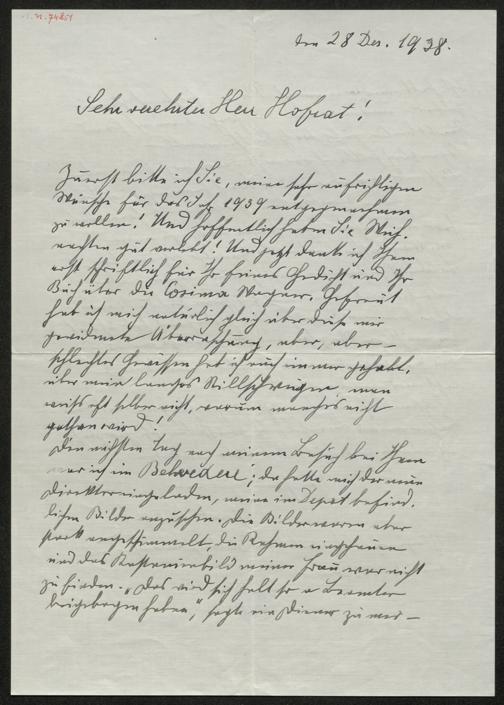 den 28 Dez. 1938.
Sehr verehrter Herr Hofrat!
Zuerst bitte ich Sie, meine sehr aufrichtigen
Wünsche für das Jahr 1939 entgegennehmen
zu wollen! Und hoffentlich haben Sie Weih-
nachten gut verlebt! Und jetzt danke ich Ihnen
erst schriftlich für Ihr feines Gedicht und Ihr
Buch über die Cosima Wagner. Gefreut
hab ich mich natürlich gleich über diese mir
gewidmete Überraschung, aber, aber –
schlechtes Gewissen hab ich auch immer gehabt,
über mein langes Stillschweigen, man
weiss oft selber nicht, warum manches nicht
gethan wird!
Den nächsten Tag nach meinem Besuch bei Ihnen
war ich im Belvedere; da hatte mich der neue
Direktor eingeladen, meine im Depot befind-
lichen Bilder anzusehen. Die Bilder waren aber
stark angeschimmelt, die Rahmen
und das Kastanienbild meiner Frau war nicht
zu finden. „Das wird sich halt so a Beamter
beigebogen haben", sagte ein Diener zu mir –